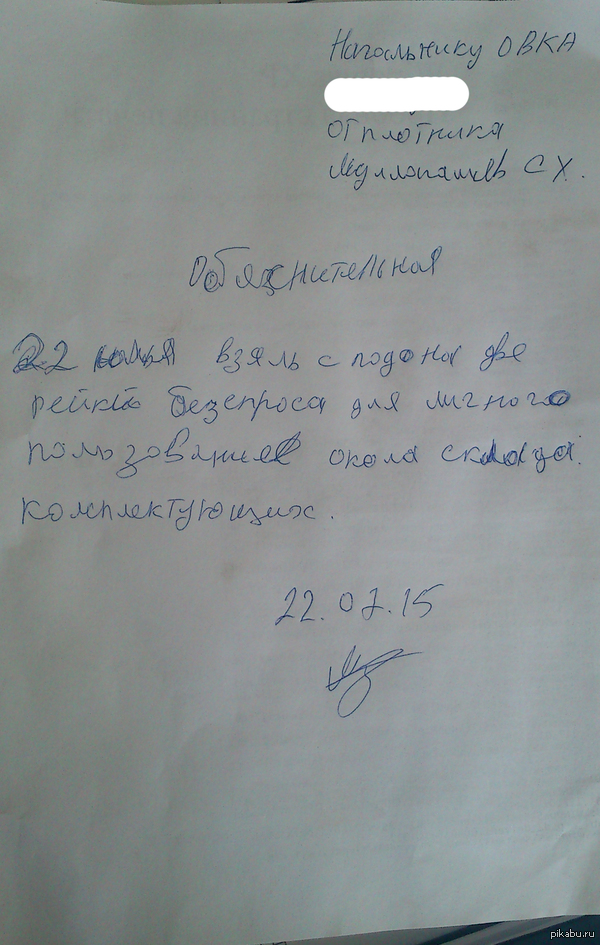 Начальнику ОВКА
от плотника
С Х.
Обяснительная
22 июля взяль с подона две
рейки безспроса для личного
пользование окола склада.
комплектующих.
22.07.15
pikabu.ru